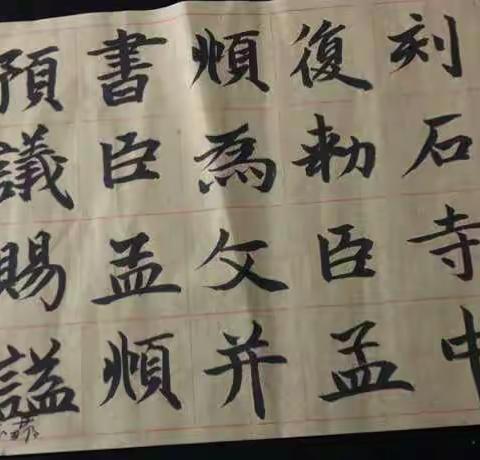 刻石寺中
復勅臣孟
頫為文并
書臣孟頫
預議賜謚